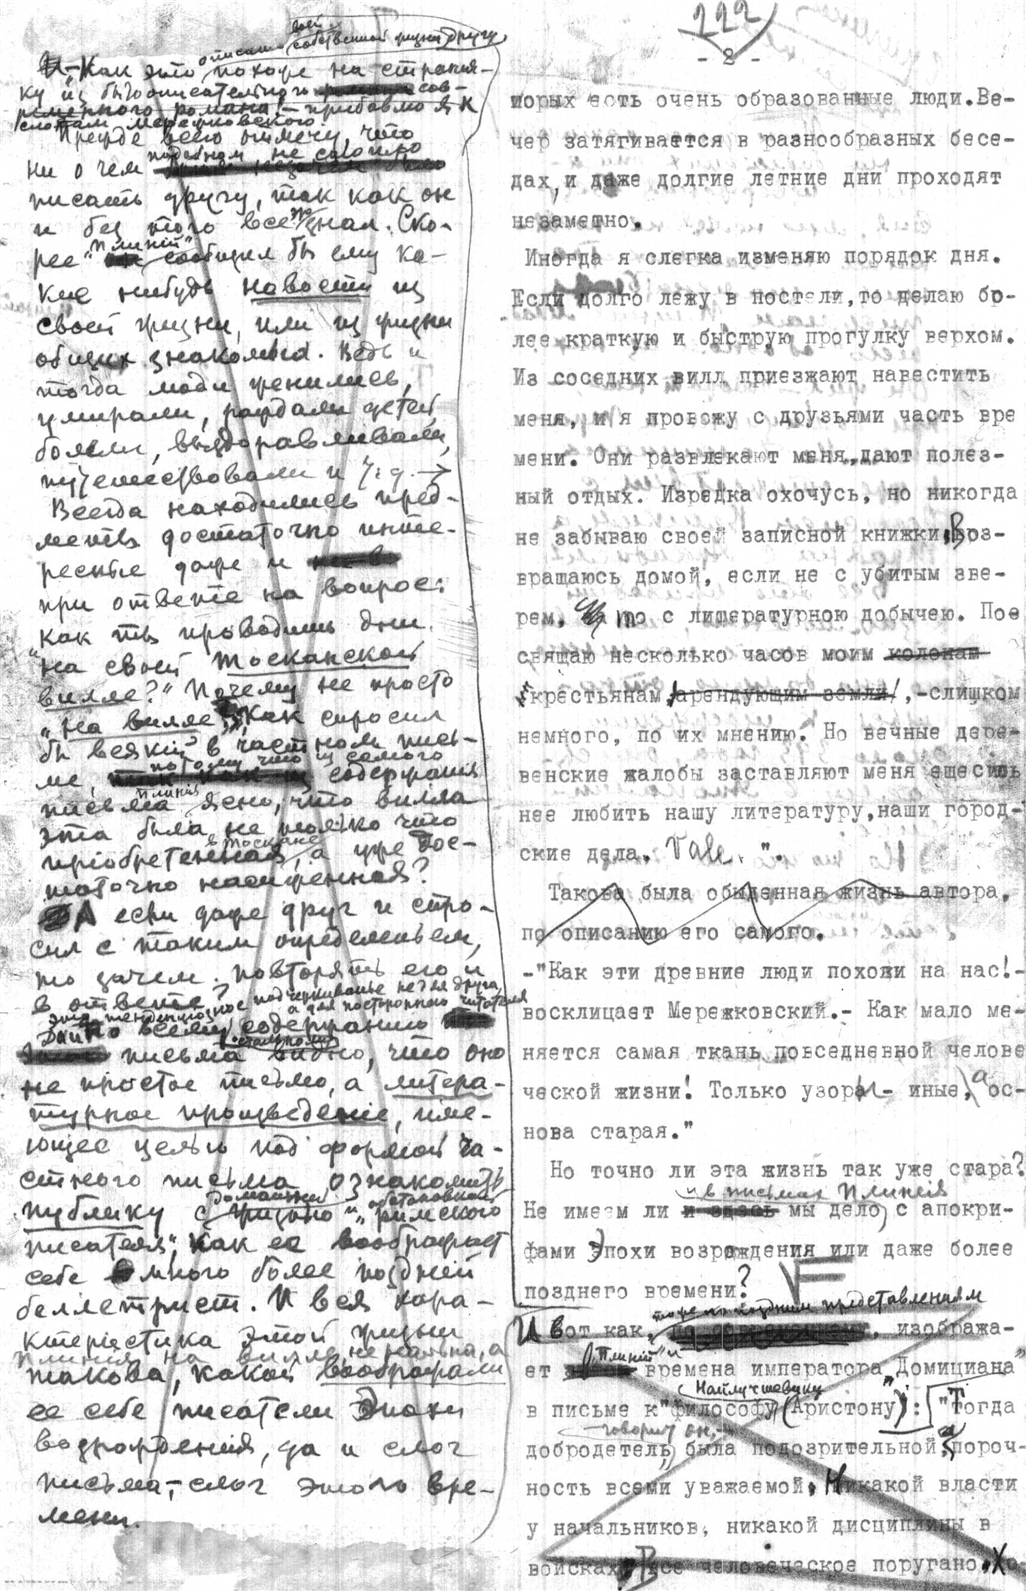 222
- 8 -
И - Как это похоже на страни-
описание своей собственной жизни другу
ку из бытоописательного сов-
ременного романа! - прибавлю я к
словам Мережковского.
Прежде всего отмечу, что
ни о чем подобном не стоило
писать другу, так как он
и без того все это знал. Ско-
рее "Плиний" сообщил бы ему ка-
кие нибудь новости из
своей жизни, или из жизни
общих знакомых. Ведь и
тогда люди женились,
умирали, рождали детей
болели, выздоравливали,
путешествовали и т.д.
Всегда находились пред-
меты достаточно инте-
ресные даже и
при ответе на вопрос:
"как ты проводишь дни
на своей тосканской
вилле?" Почему не просто
"на вилле", как спросил
бы всякий в частном пись-
ме, потому что из самого содержания
письма Плиния ясно, что вилла
эта была не только что
приобретенная в Тоскане, а уже дос-
таточно насиженная?
А если даже друг и спро-
сил с таким определеньем,
то зачем повторять его и
в ответе?
это тенденциозное подчеркиванье не для друга,
а для постороннего читателя
Да и по всему остальному содержанию
письма видно, что оно
не простое письмо, а литера-
турное произведение, име-
ющее целью под формой ча-
стного письма ознакомить
публику с домашней жизнью и обстановкой "римского
писателя", как ее воображает
себе много более поздней
беллетрист. И вся хара-
ктеристика этой жизни
Плиния на вилле не реальна, а
такова, какой воображали
ее себе писатели Эпохи
возрождения, да и слог
письма, - слог этого вре-
мени.
торых есть очень образованные люди. Ве-
чер затягивается в разнообразных бесе-
дах, и даже долгие летние дни проходят
незаметно.
Иногда я слегка изменяю порядок дня.
Если долго лежу в постели, то делаю бо-
лее краткую и быструю прогулку верхом.
Из соседних вилл приезжают навестить
меня, и я провожу с друзьями часть вре
мени. Они развлекают меня, дают полез-
ный отдых. Изредка охочусь, но никогда
не забываю своей записной книжки. Воз-
вращаюсь домой, если не с убитым зве-
рем, то с литературною добычею. Пос
свящаю несколько часов моим колонам
крестьянам, арендующим земли, - слишком
немного, по их мнению. Но вечные дере-
венские жалобы заставляют меня еще силь
нее любить нашу литературу, наши город-
ские дела. Vale.".
Такова была обыденная жизнь автора,
по описанию его самого.
-"Как эти древние люди похожи на нас!-
восклицает Мережковский.- Как мало ме-
няется самая ткань повседневной челове
ческой жизни! Только узоры - иные, а ос-
нова старая."
Но точно ли эта жизнь так уже стара?
и в письмах Плиния
Не имеем ли и здесь мы дело с апокри-
фами Эпохи возрождения или даже более
позднего времени?
тоже по поздним представлениям
И вот как, изобража-
ет "Плиний" и времена императора "Домициана"
Наилучшевику
в письме к "философу (Аристону): "Тогда
- говорит он, -
добродетель была подозрительной, пороч-
ность всеми уважаемой. Никакой власти
у начальников, никакой дисциплины в
войсках. Все человеческое поругано. Хо-